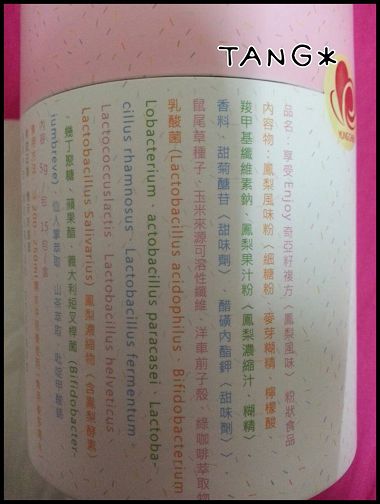 TANG*
品名：享受Enjoy 奇亞籽複方〈鳳梨風味〉粉狀食品
內容物：鳳梨風味粉〈細糖粉、麥芽糊精、檸檬酸、
羧甲基纖維素鈉、鳳梨果汁粉〈鳳梨濃縮汁、糊精〉
香料、甜菊醣苷〈甜味劑〉、醋磺內酯鉀〈甜味劑〉〉、
鼠尾草種子、玉米來源可溶性纖維、洋車前子殼、綠咖啡萃取物
乳酸菌(Lactobacillus acidophilus、Bifidobacterium
Lobacterium、actobacillus paracasei、Lactoba-
cillus rhamnosus、Lactobacillus fermentum、
Lactococcuslactis、Lactobacillus helveticus
Lactobacillus Salivarius)鳳梨濃縮物〈含鳳梨酵素〉
、幾丁聚糖、蘋果醋、義大利短叉桿菌〈Bifidobacter-
iumbreve〉、仙人掌萃取、山茶萃取、吡啶甲酸鉻
內容量：5g／包，15包／盒